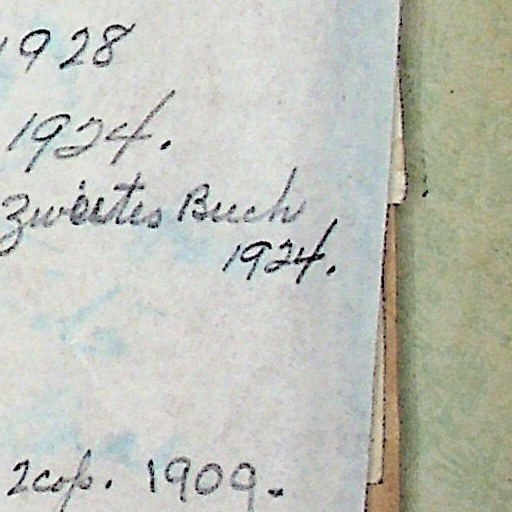 1928
1924.
Zweites Buch
1924.
2 cop. 1909.